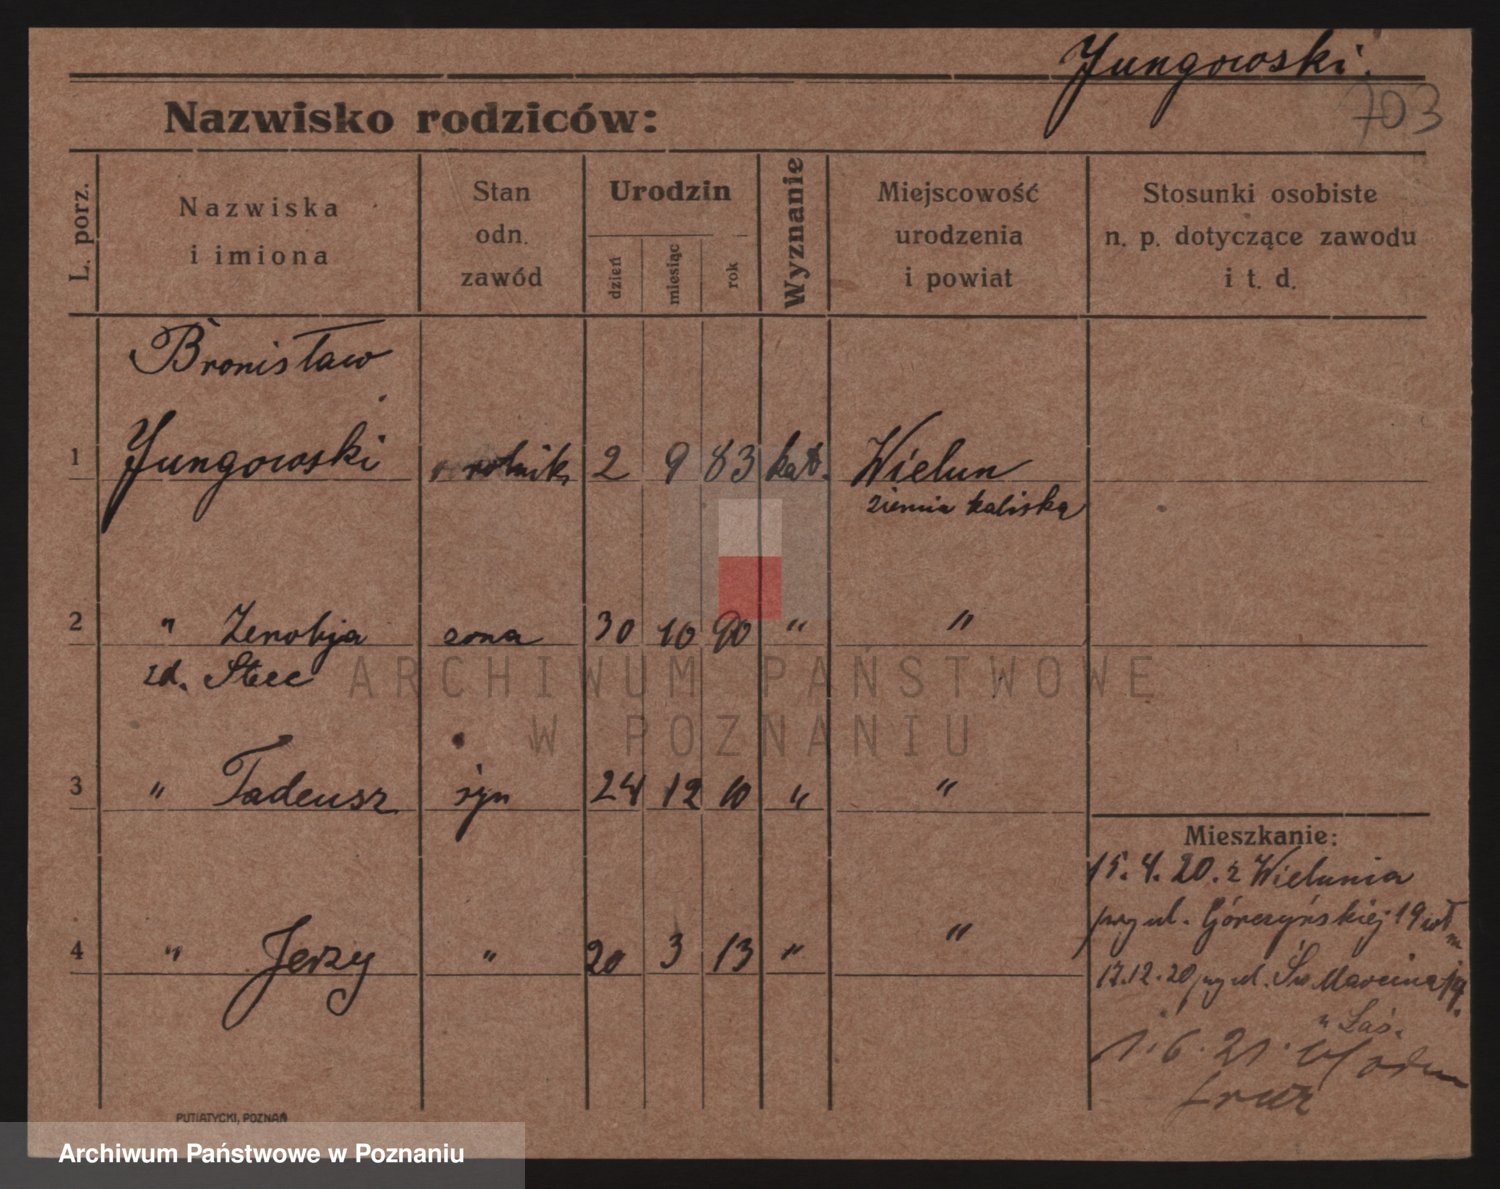 Jungowski.
703
Nazwisko rodziców:
L. porz.
Nazwiska
i imiona
Stan
odn.
zawód
Urodzin
dzień
miesiąc
rok
Wyznanie
Miejscowość
urodzenia
i powiat
Stosunki osobiste
n. p. dotyczące zawodu
i t. d.
Bronisław
1 Jungowski rolnik 2 9 83 kat. Wielun
ziemia kaliska
2 " Zenobja zona 30 10 90 " "
zd. Stec
ARCHIWUM PAŃSTWOWE
W POZNANIU
3 " Tadeusz syn 24 12 10 " "
Mieszkanie:
15.4.20. z Wielunia
przy ul. Górczyńskiej 19
4 " Jerzy " 20 3 13 " "
17.12.20 przy ul. Św Marcina
1.6.21.
PUTIATYCKI, POZNAŃ
Archiwum Państwowe w Poznaniu